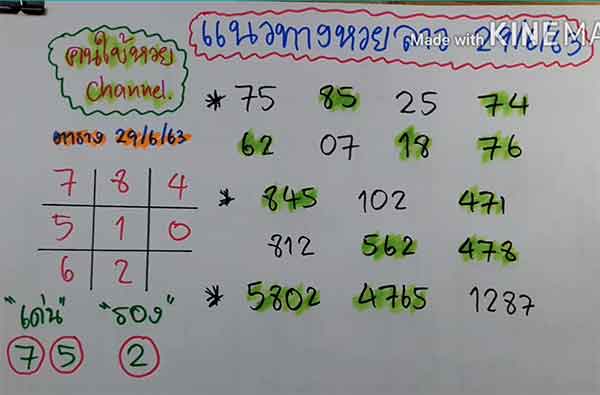 แนวทางหวยลาว 29/6/63
Made with KINEMA
คนใบ้หวย
Channel.
ตาราง 29/6/63
7 8 4
5 1 0
6 2
"เด่น" "รอง"
7 5 2
* 75 85 25 74
62 07 18 76
* 845 102 471
812 562 478
* 5802 4765 1287